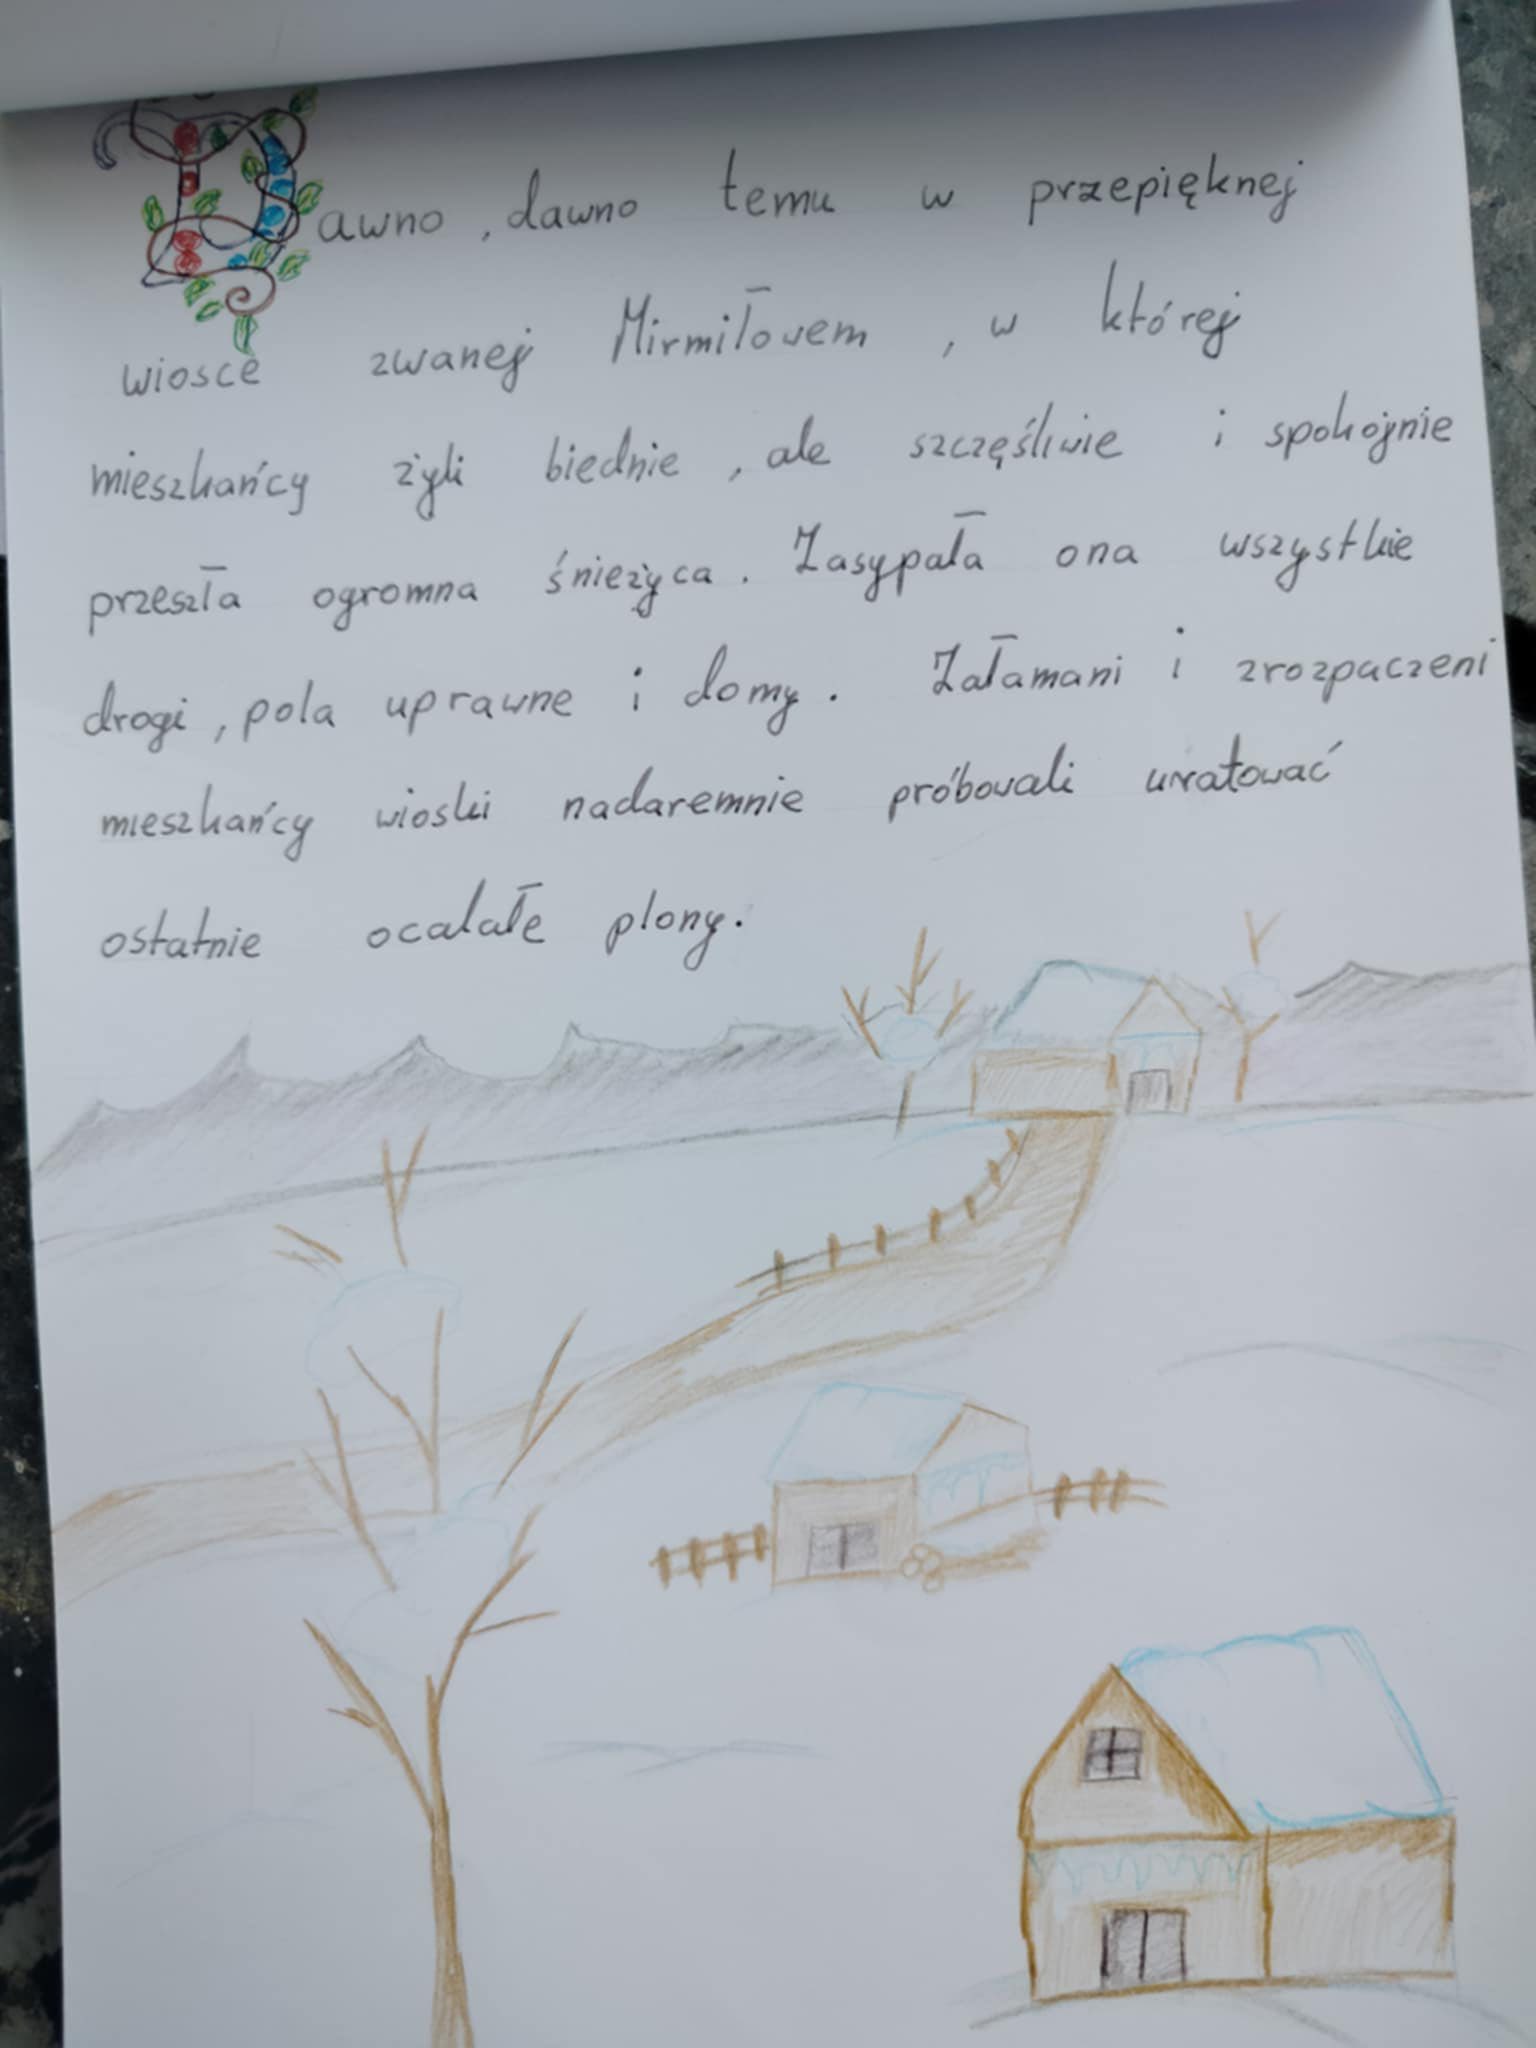 Dawno, dawno temu w przepięknej
wiosce zwanej Mirmiłowem, w której
mieszkańcy żyli biednie, ale szczęśliwie i spokojnie
przeszła ogromna śnieżyca. Zasypała ona wszystkie
drogi, pola uprawne i domy. Załamani i zrozpaczeni
mieszkańcy wioski nadaremnie próbowali uratować
ostatnie ocalałe plony.